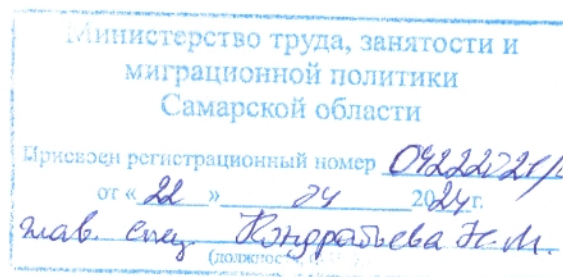 Министерство труда, занятости и
миграционной политики
Самарской области
Присвоен регистрационный номер
от « 22 » 04 2024 г.
глав. спец. Кондратьева Н.М.
(должность,